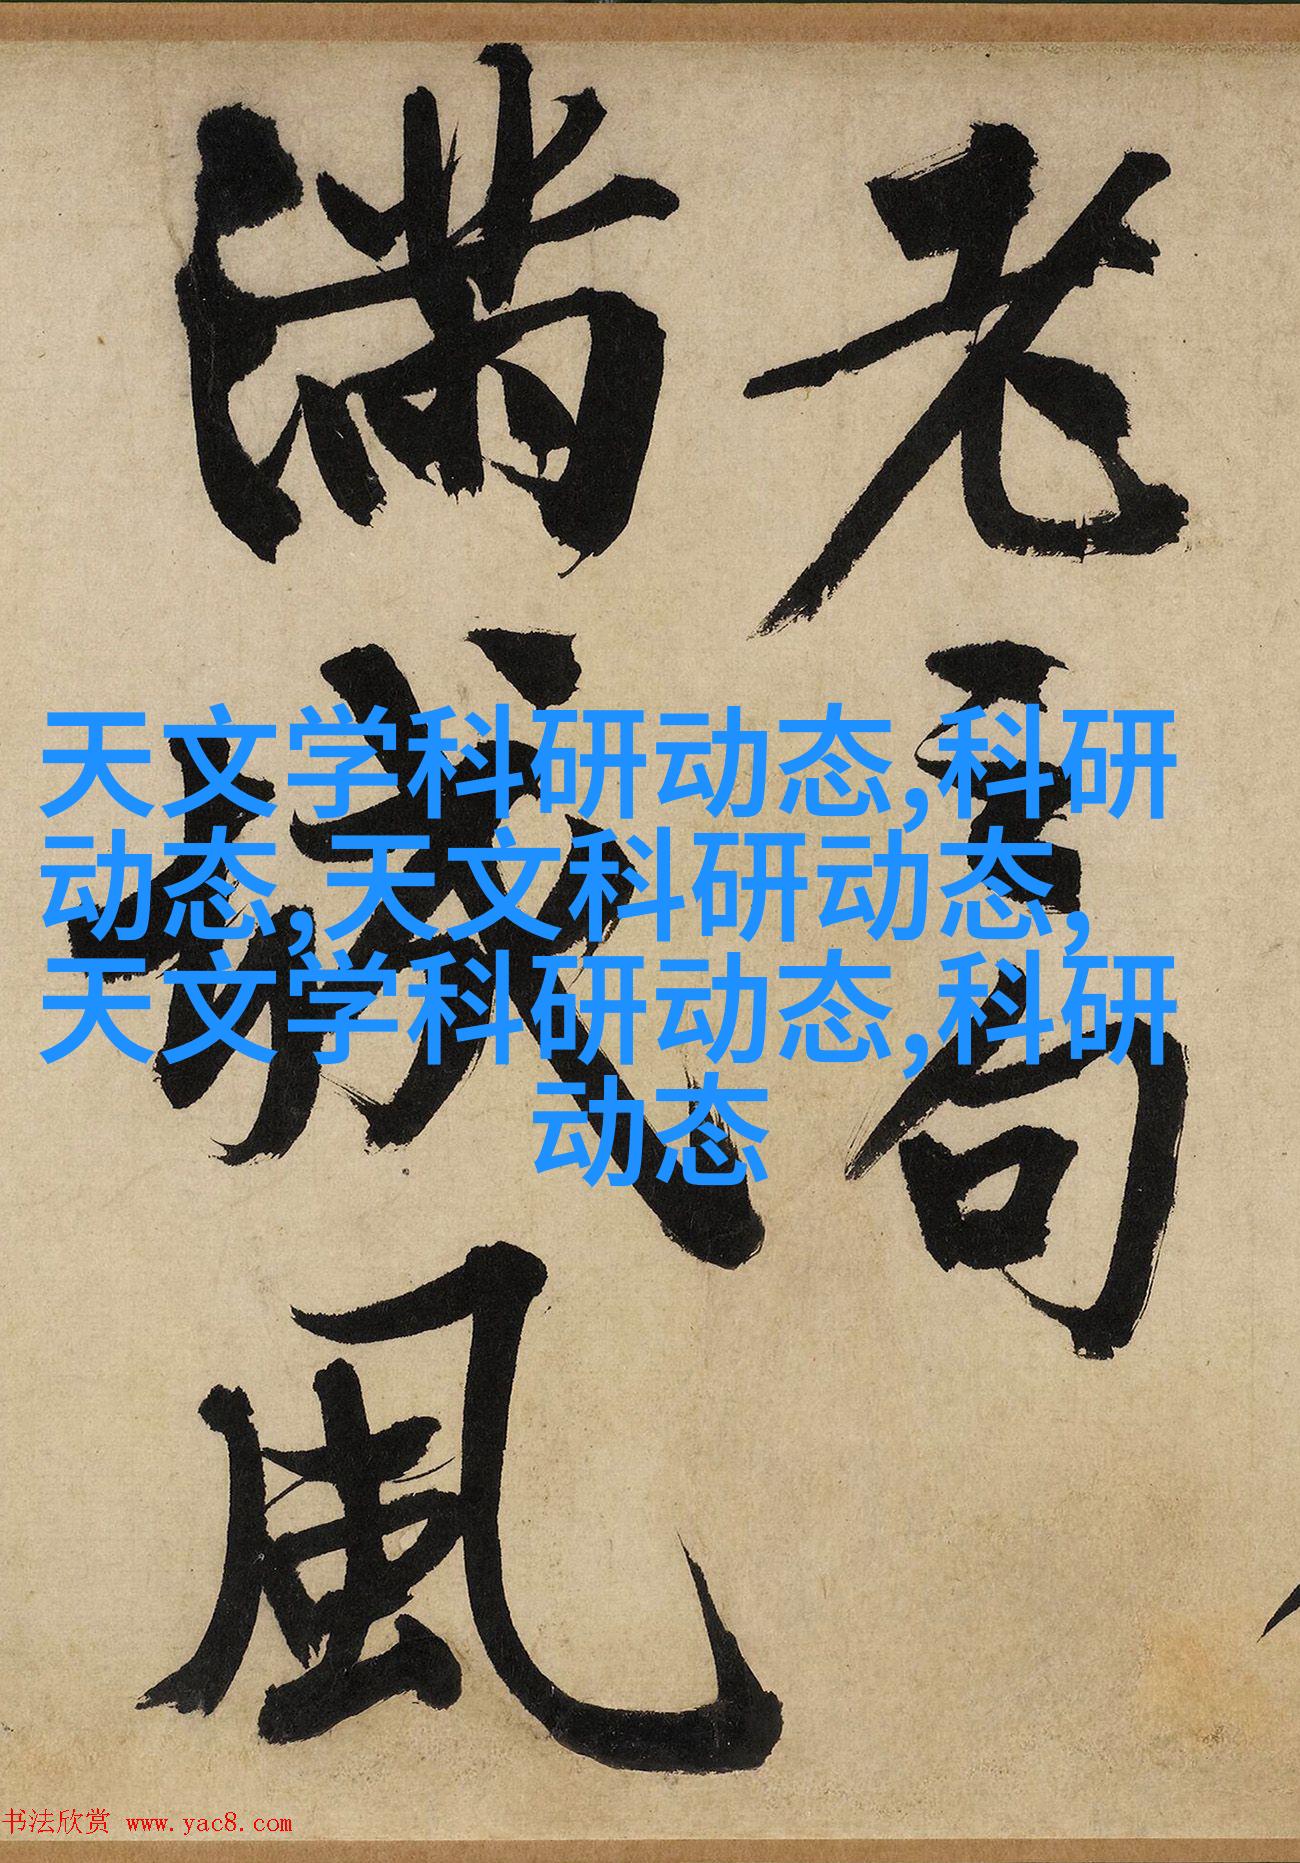 老焉句
满城風
天文学科研动态,科研
动态,天文科研动态,
天文学科研动态,科研
动态
书法欣赏 www.yac8.com